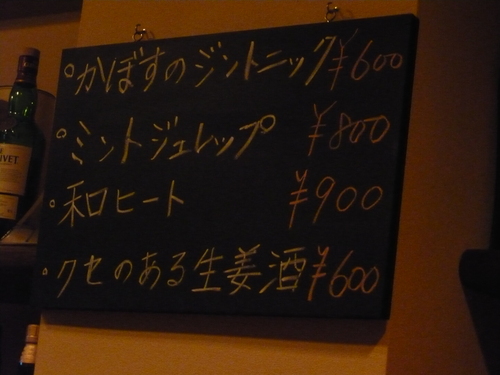 ・かぼすのジントニック ¥600
・ミントジュレップ ¥800
・和ロヒート ¥900
・クセのある生姜酒 ¥600
VET